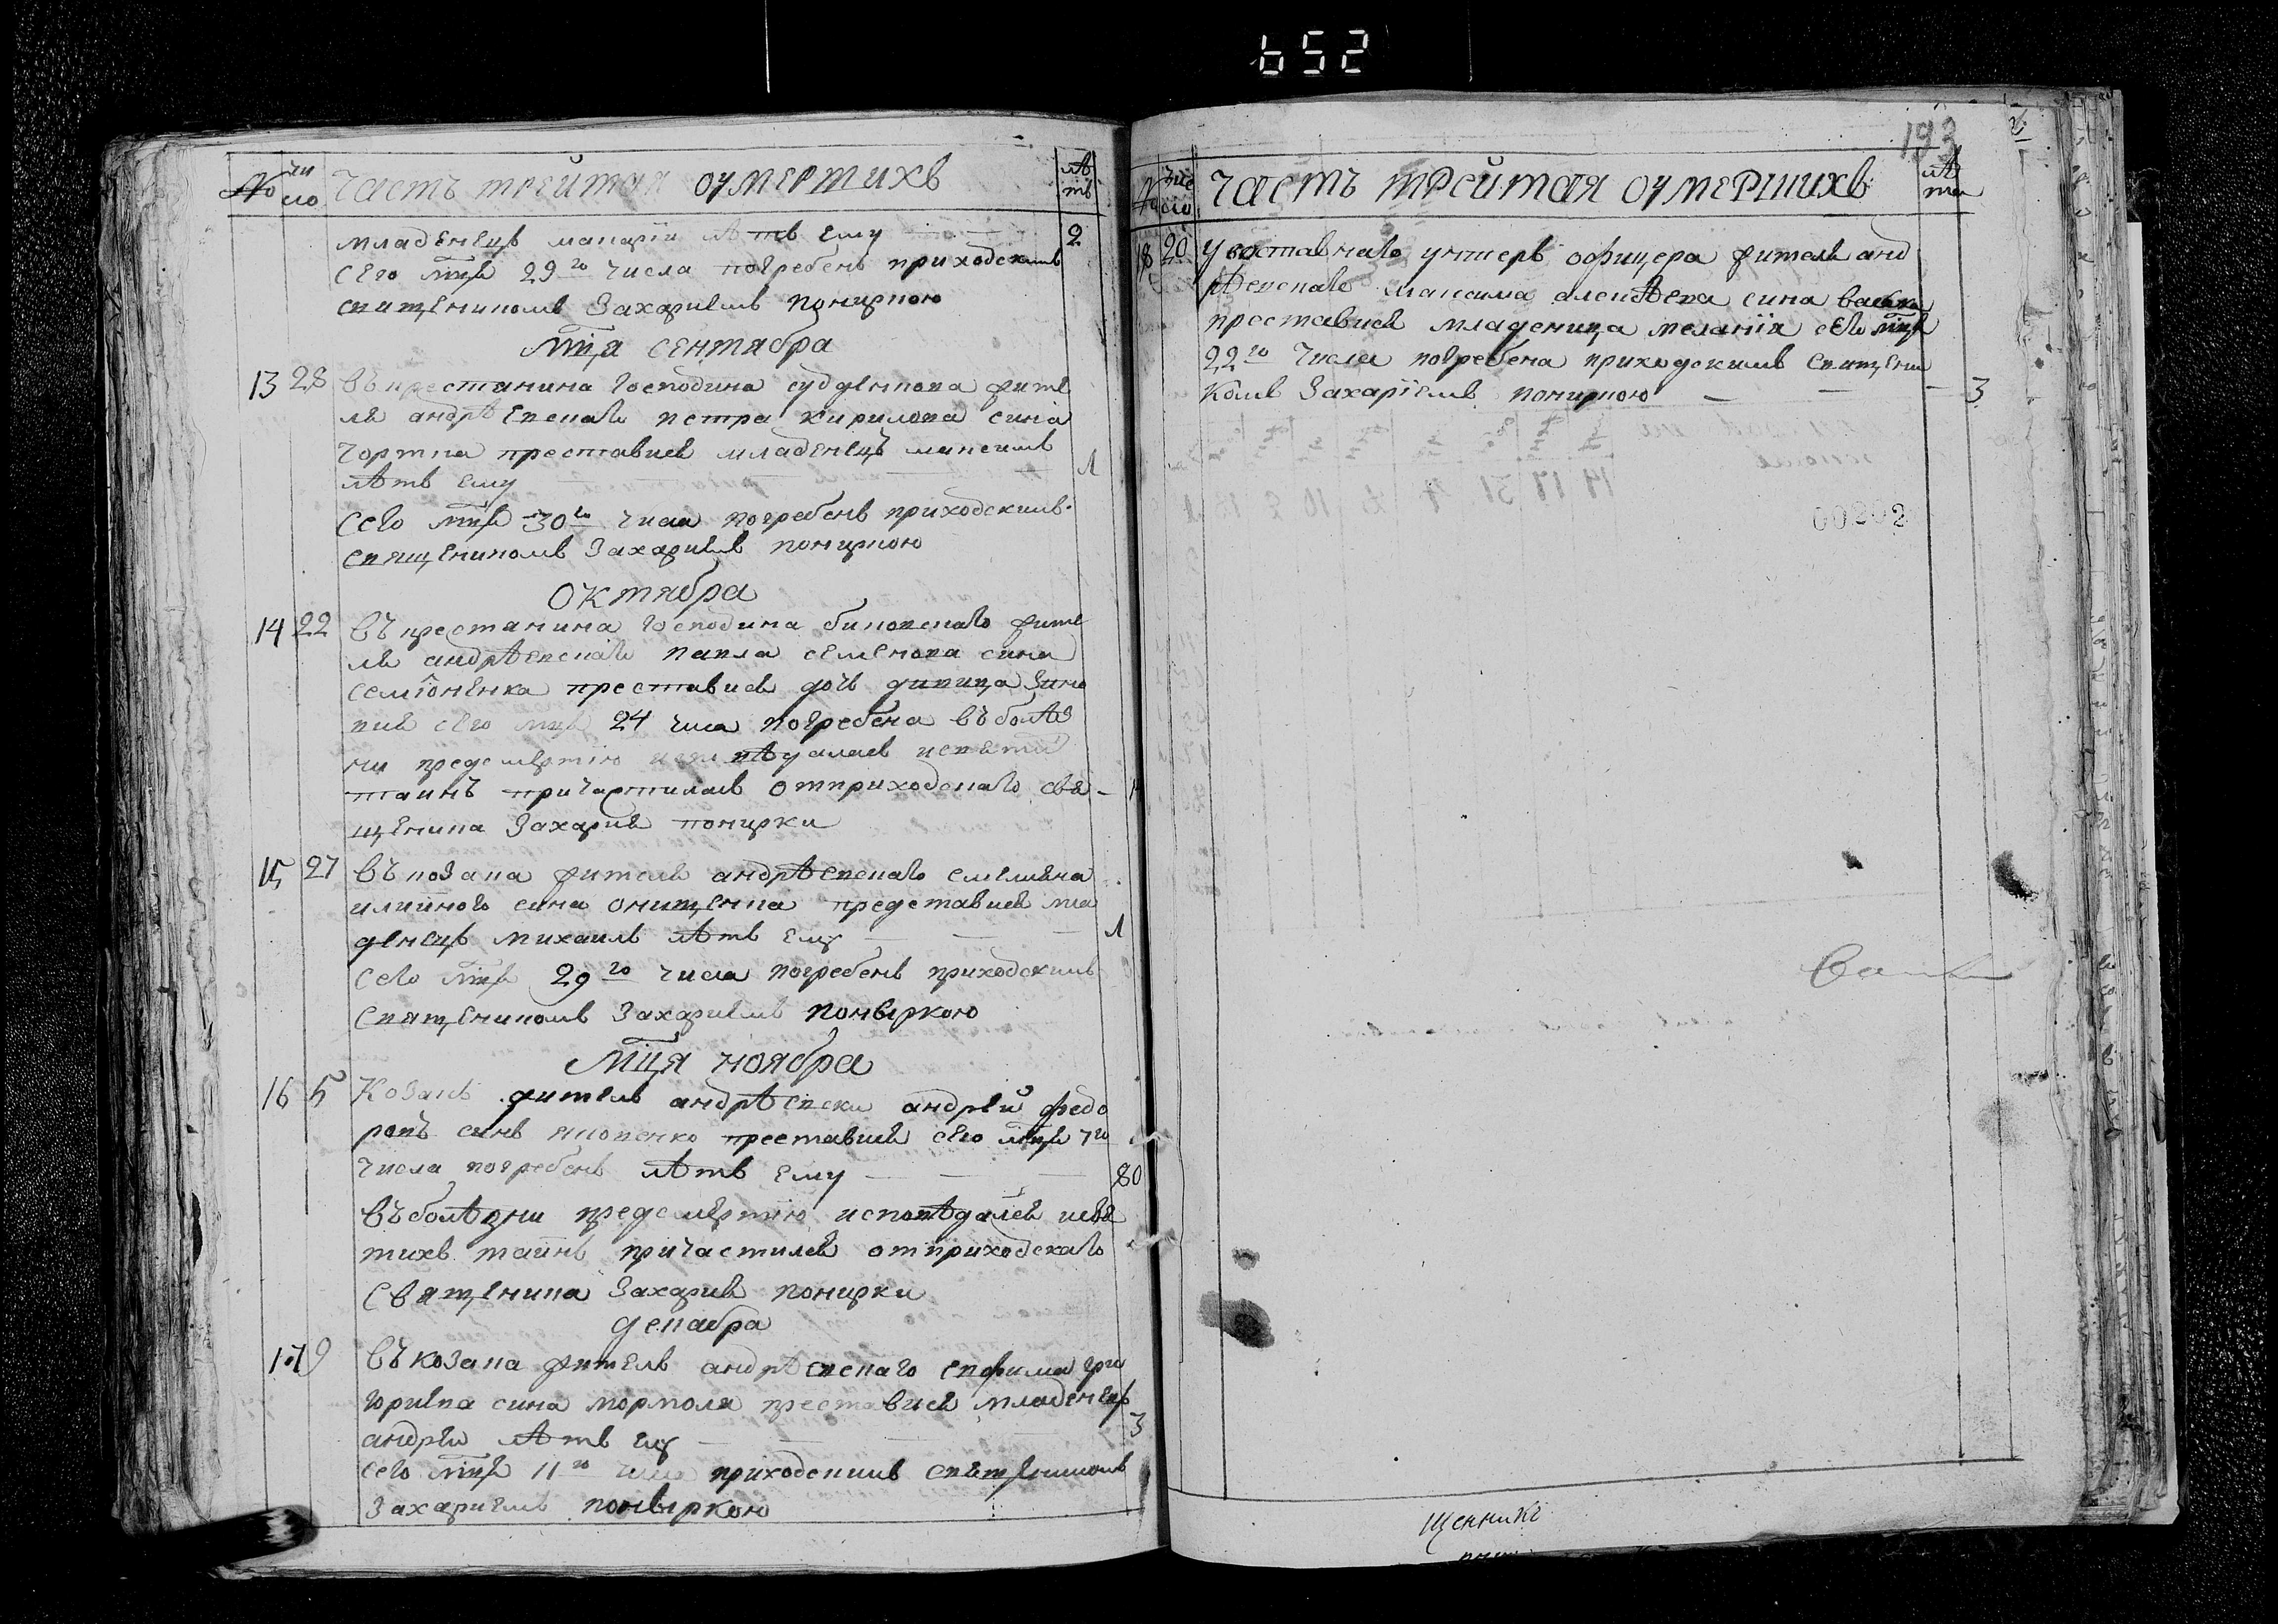 652
№ чи сло Часть трейтая оумертихъ лѣ тъ
младенецъ макарїи лѣтъ ему 2
сего мⷭ҇ца 29го числа погребенъ приходскимъ
священикомъ Захариемъ пониркою
Мц҃а сентября
13 28 въ крестянина господина судденкова жите
ля андрѣевскаго петра кирилова сина
чортка преставися младенецъ максимъ
лѣтъ ему 1
сего мц҃а 30го числа погребенъ приходскимъ
священикомъ Захариемъ пониркою
октября
14 22 въ крестянина господина биковскаго жите
ля андрѣевскаго павла семенова сина
семїоненка преставися дочь дивица Зино
вия сего мц҃а 24 числа погребена въ болѣз
ни предсмертию исповѣдалась исвяти
таинъ причастилась отприходскаго свя
щеника Захария понирки
15 27 въ козака жителя андрѣевскаго емелияна
илииного сина онищенка представися мла
денецъ михаилъ лѣтъ ему 1
сего мц҃а 29го числа погребенъ приходскимъ
священикомъ Захариемъ понвіркою
Мц҃я ноября
16 5 Козакъ житель андрѣевски андрей федо
ровъ синъ яковенко преставися сего мц҃а 7го
числа погребенъ лѣтъ ему 80
въ болѣзни предсмертию исповѣдался исвя
тихъ таинъ причастился отприходскаго
священика Захария понирки
декабра
17 9 въ козака житель андрѣевскаго евфима гри
гориева сина мормоля преставися младенецъ
андреи лѣтъ ему 3
сего мц҃а 11го числа приходскимъ священикомъ
Захариемъ понвіркою
193
№ чис ло Часть трейтая оумершихъ лѣ та
18 20 у воставнаго унтеръ офицера жителя анд
рѣевскаго максима алексѣева сина
преставися младеница меланїя сего мц҃а
22го числа погребена приходскимъ священи
комъ Захарїемъ пониркою 3
00202
щенникъ